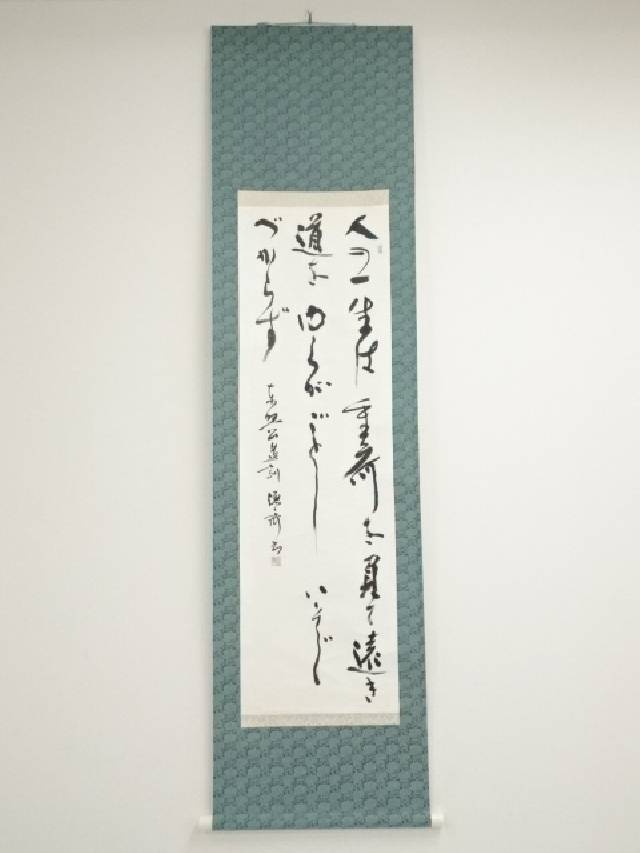 人の一生は重荷を負て遠き
道をゆくがごとし いそぐ
べからず
東照公遺訓